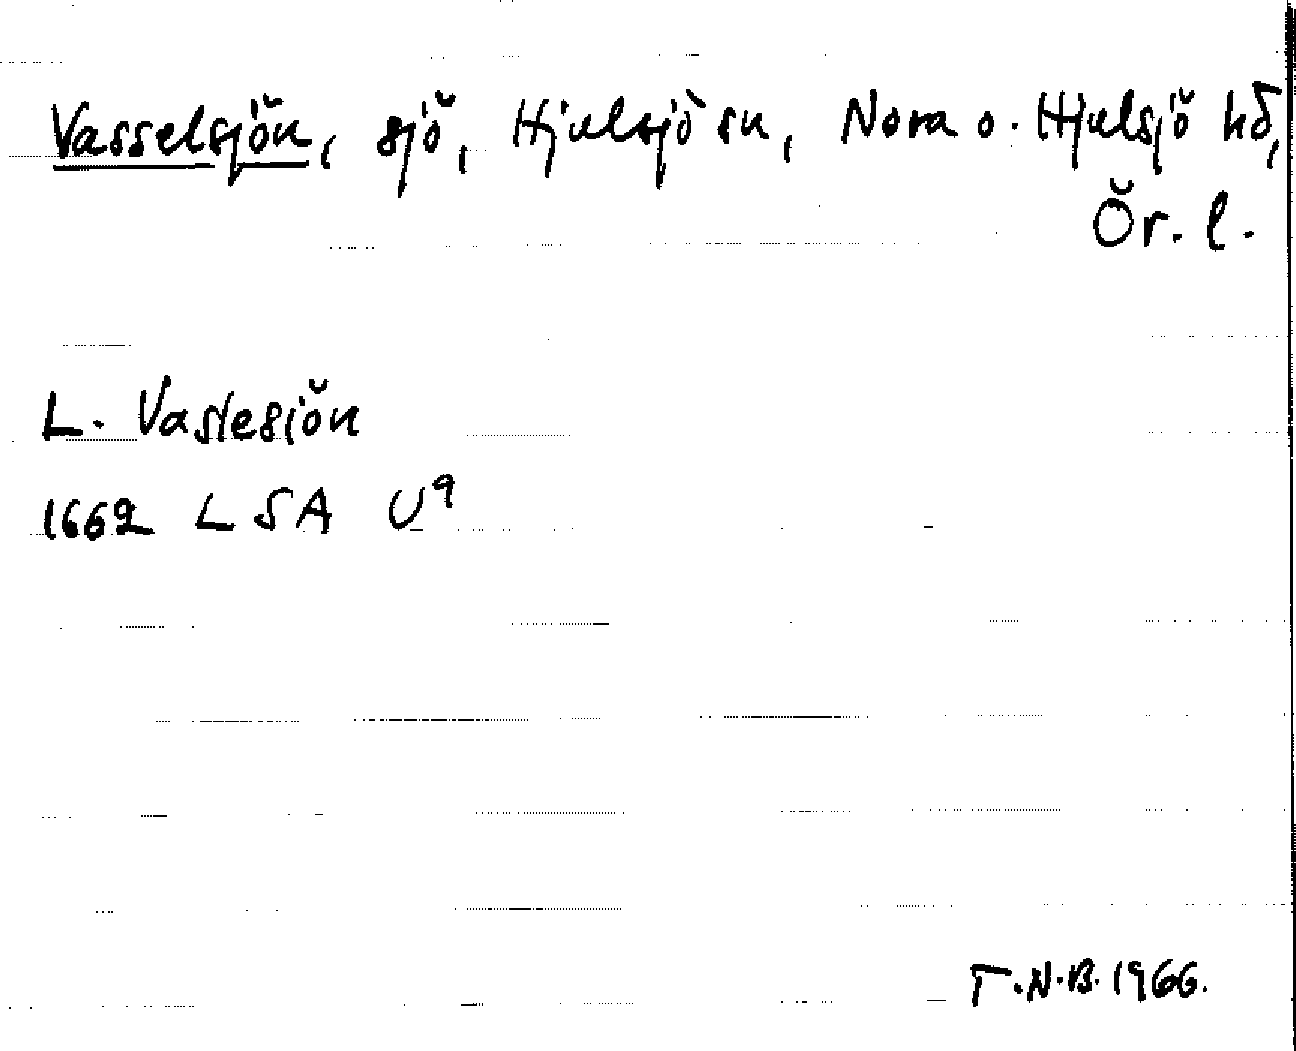 Vasselsjön, sjö, Hjulsjö sn, Nora o. Hjulsjö hd,
Ör. l.
L. Vasslesiön
1662 LSA U9
T.N.B. 1966.